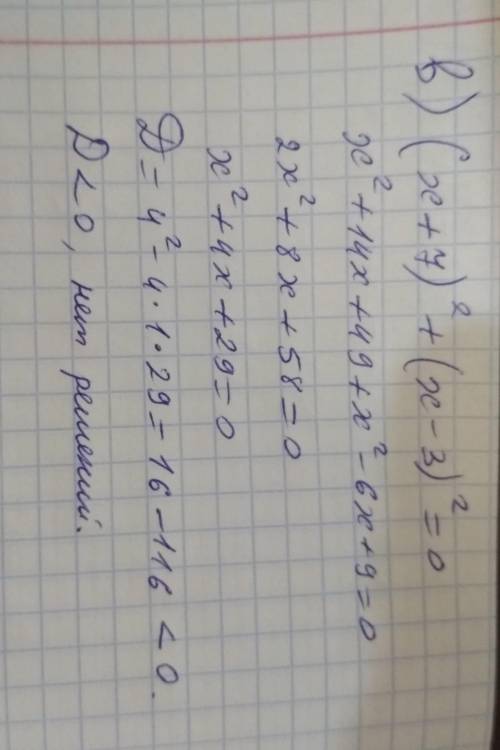 в) (x+7)² + (x-3)² = 0
x² + 14x + 49 + x² - 6x + 9 = 0
2x² + 8x + 58 = 0
x² + 4x + 29 = 0
D = 4² - 4·1·29 = 16 - 116 < 0.
D < 0, нет решений.